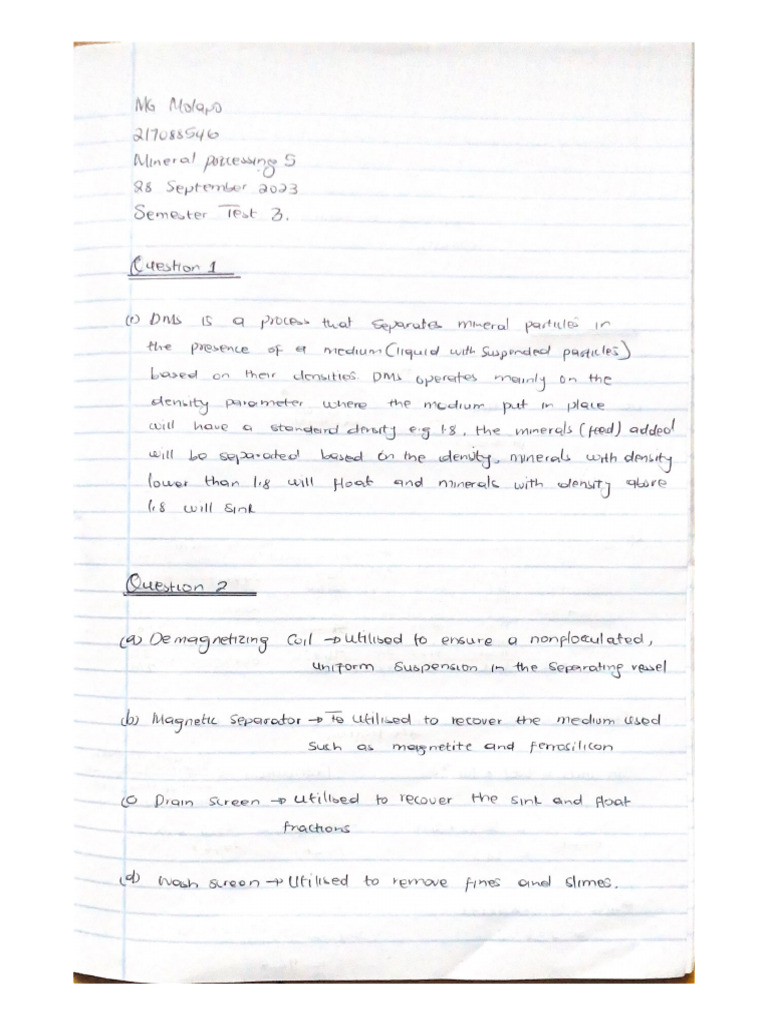 MG Molapo
217088546
Mineral porcessing 5
28 September 2023
Semester Test 3.
Question 1
(1) DMS is a process that separates mineral particles in
the presence of a medium (liquid with suspended particles)
based on their densities. DMS operates mainly on the
density parameter where the medium put in place
will have a standard density e.g 1.8, the minerals (feed) added
will be separated based on the density, minerals with density
lower than 1.8 will float and minerals with density above
1.8 will sink
Question 2
(a) Demagnetizing Coil → utilised to ensure a nonploculated,
uniform suspension in the separating vessel
(b) Magnetic Separator → To utilised to recover the medium used
such as magnetite and ferrosilicon
(c) Drain screen → utilised to recover the sink and float
fractions
(d) Wash screen → Utilised to remove fines and slimes.